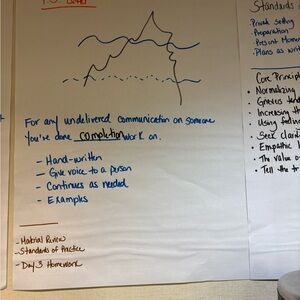 For any undelivered communication on someone
You've done completion work on.
- Hand-written
- Give voice to a person
- Continues as needed
- Examples
- Material Review
- Standards of Practice
- Day 3 Homework
Standards
Private setting
Preparation
Present Mome
Plans as writ
Core Princip
• Normalizing
• Grievers te
• Increasing th
• Using feelin
• Seek clari
• Empathic l
• The value o
• Tell the tr